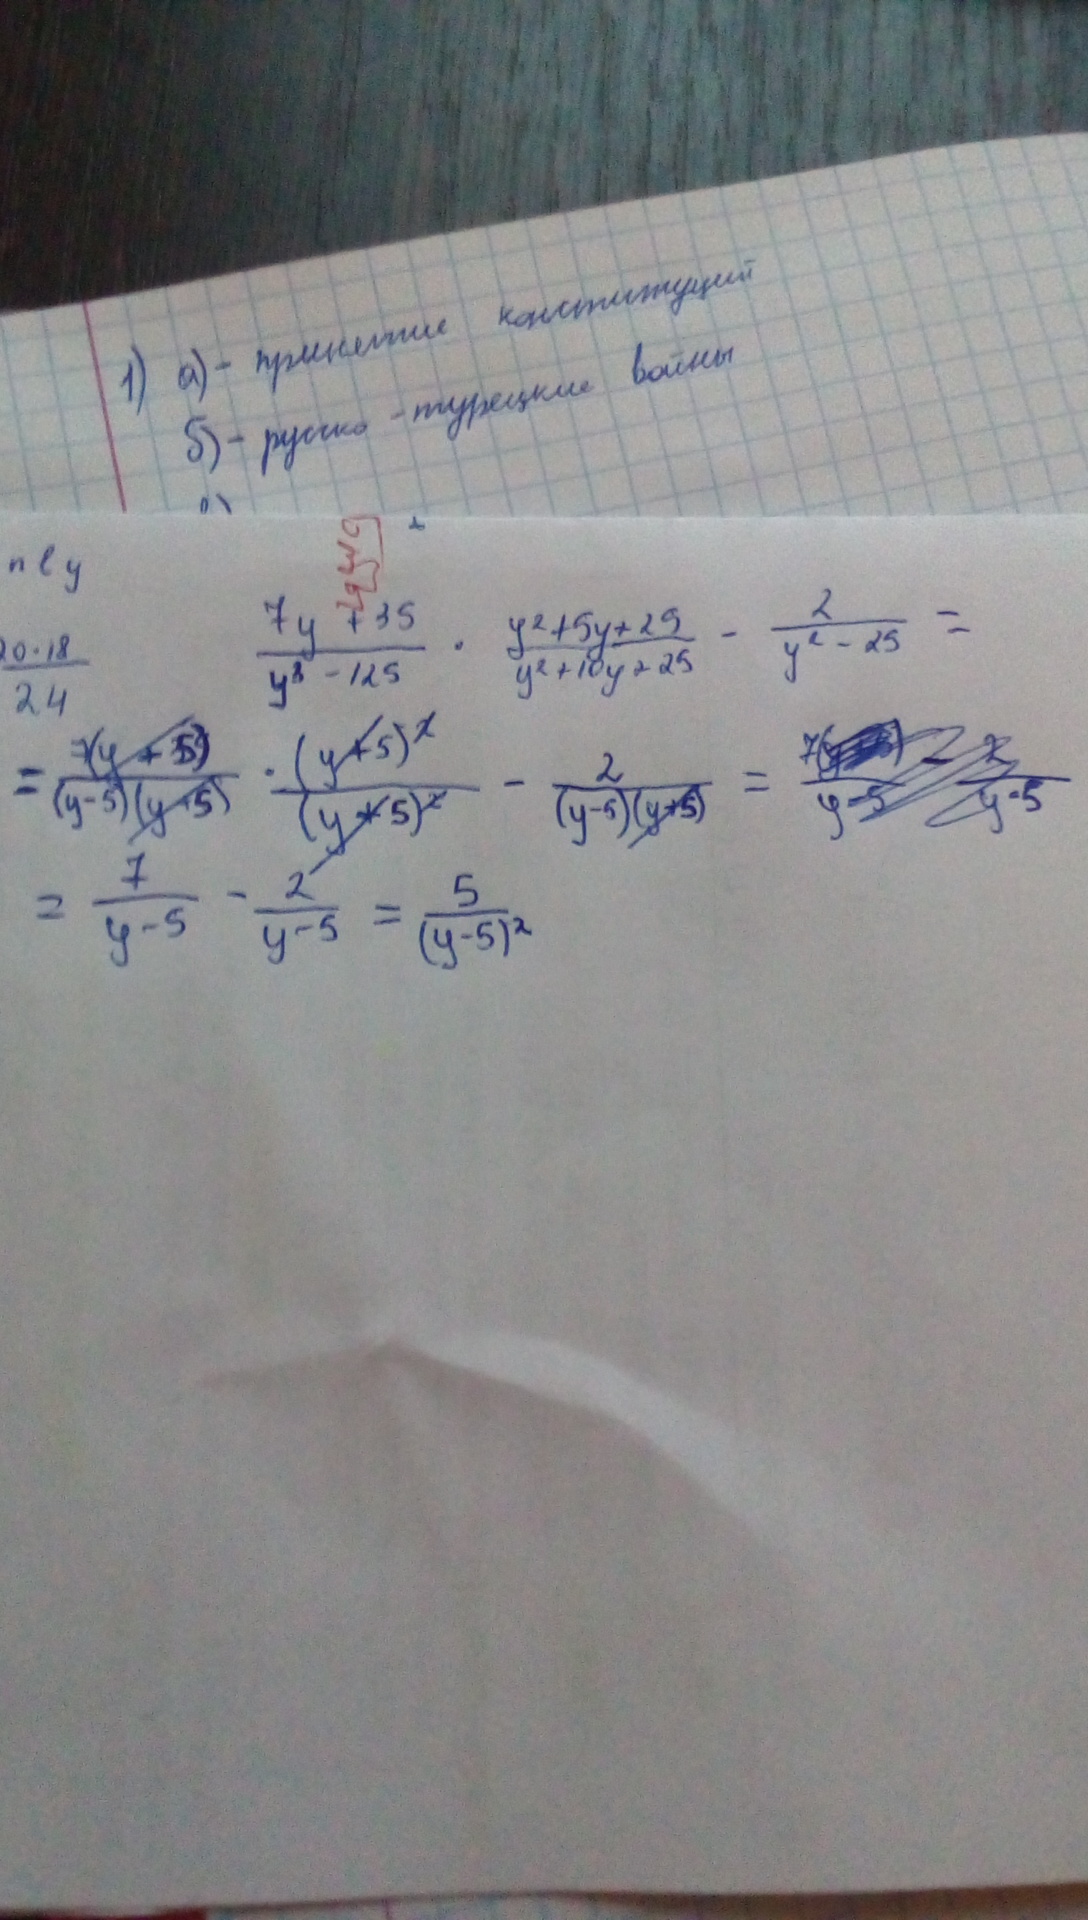 1) а) - принятие конституций
б) - русско-турецкие войны
в)
n l y
20·18/24
(7y + 35)/(y³ - 125) · (y² + 5y + 25)/(y² + 10y + 25) - 2/(y² - 25) =
= 7(y + 5)/((y-5)(y-5)) · (y+5)²/(y+5)² - 2/((y-5)(y+5)) =
= 7/(y-5) - 2/(y-5) = 5/(y-5)²